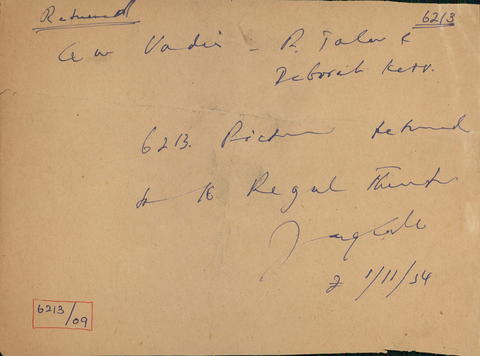 Returned
6213
Quo Vadis - R. Taylor &
Deborah Kerr.
6213. Picture returned
to Regal Theatre
1/11/54
6213/09